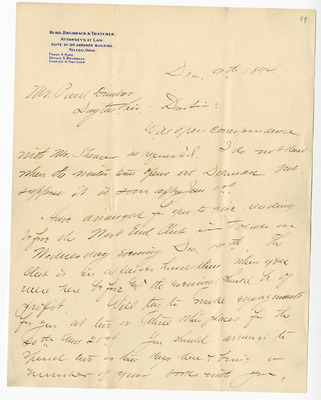 HURD, BRUMBACK & THATCHER,
ATTORNEYS AT LAW,
SUITE 311-315 GARDNER BUILDING,
TOLEDO, OHIO.
FRANK H. HURD,
ORVILLE S. BRUMBACK
CHARLES A. THATCHER
Dec. 1894
Mr. Paul Dunbar
Dayton Ohio - Dear Sir:
Will open correspondence
with Mr. as requested. I do not know
when the
suppose it is soon after Jan 1st.
Have arranged for you to give reading
before the West End Club in Toledo on
Wednesday evening Dec. 19th. The
Club is in a larger house than when you
were here before & the evening should be of
profit. Will try to make engagements
for you at two or three other places for the
20th and 21st. You should arrange to
spend two or three days here & bring a
number of your books with you,